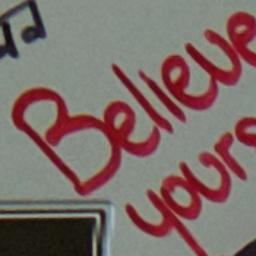 Believe
your